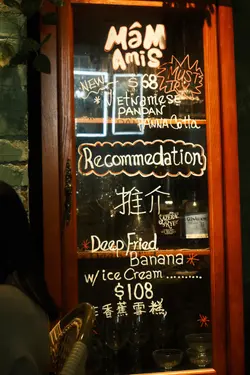 MâM
AMiS
NEW $68 MUST
TRY
*VIETNAMESE
PANDAN
PANNA Cotta
Recommedation
推介
*Deep Fried
Banana *
w/ ice Cream ..........
$108
香蕉雪糕